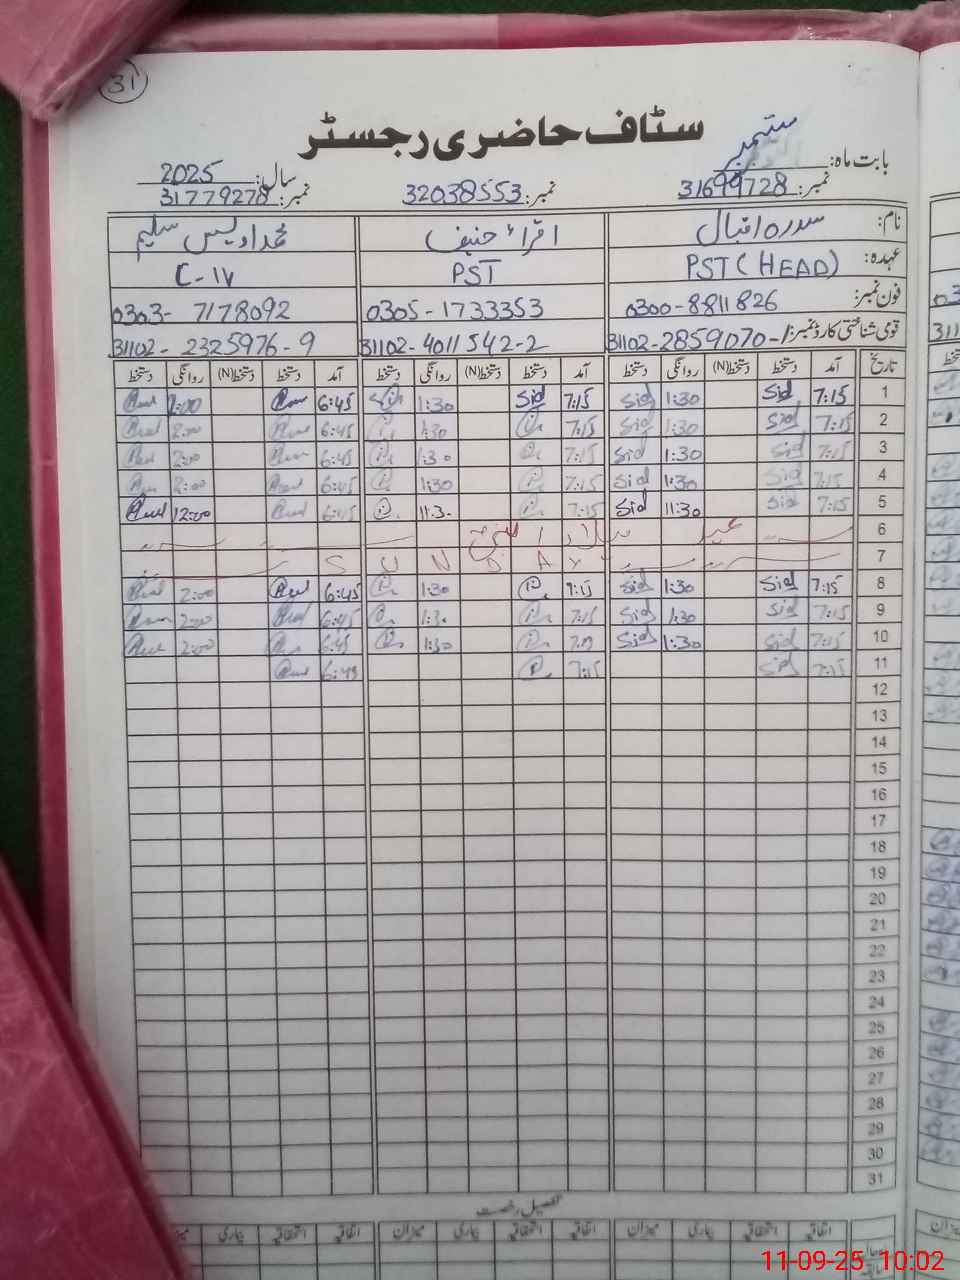 31
سٹاف حاضری رجسٹر
بابت ماہ: ستمبر سال: 2025
نمبر: 31699728 نمبر: 32038553 نمبر: 31779278
نام: سدرہ اقبال اقراء حنیف محمد اویس سلیم
عہدہ: PST (HEAD) PST C-IV
فون نمبر: 0300-8811826 0305-1733353 0303-7178092
قومی شناختی کارڈ نمبر: 31102-2859070-1 31102-4011542-2 31102-2325976-9
تاریخ آمد دستخط دستخط(N) روانگی دستخط آمد دستخط دستخط(N) روانگی دستخط آمد دستخط دستخط(N) روانگی دستخط
1 7:15 Sid 1:30 Sid 7:15 Sid 1:30 6:45 2:00
2 7:15 Sid 1:30 Sid 7:15 1:30 6:45 2:00
3 7:15 Sid 1:30 Sid 7:15 1:30 6:45 2:00
4 7:15 Sid 1:30 Sid 7:15 1:30 6:45 2:00
5 7:15 Sid 11:30 Sid 7:15 11:30 6:45 12:00
6 عید میلاد النبی
7 SUNDAY
8 7:15 Sid 1:30 Sid 7:15 1:30 6:45 2:00
9 7:15 Sid 1:30 Sid 7:15 1:30 6:45 2:00
10 7:15 Sid 1:30 Sid 1:30 6:45 2:00
11 7:15 Sid 7:15
12
13
14
15
16
17
18
19
20
21
22
23
24
25
26
27
28
29
30
31
تفصیل رخصت
اتفاقیہ استحقاقیہ بیماری میزان اتفاقیہ استحقاقیہ بیماری میزان اتفاقیہ استحقاقیہ بیماری
11-09-25 10:02